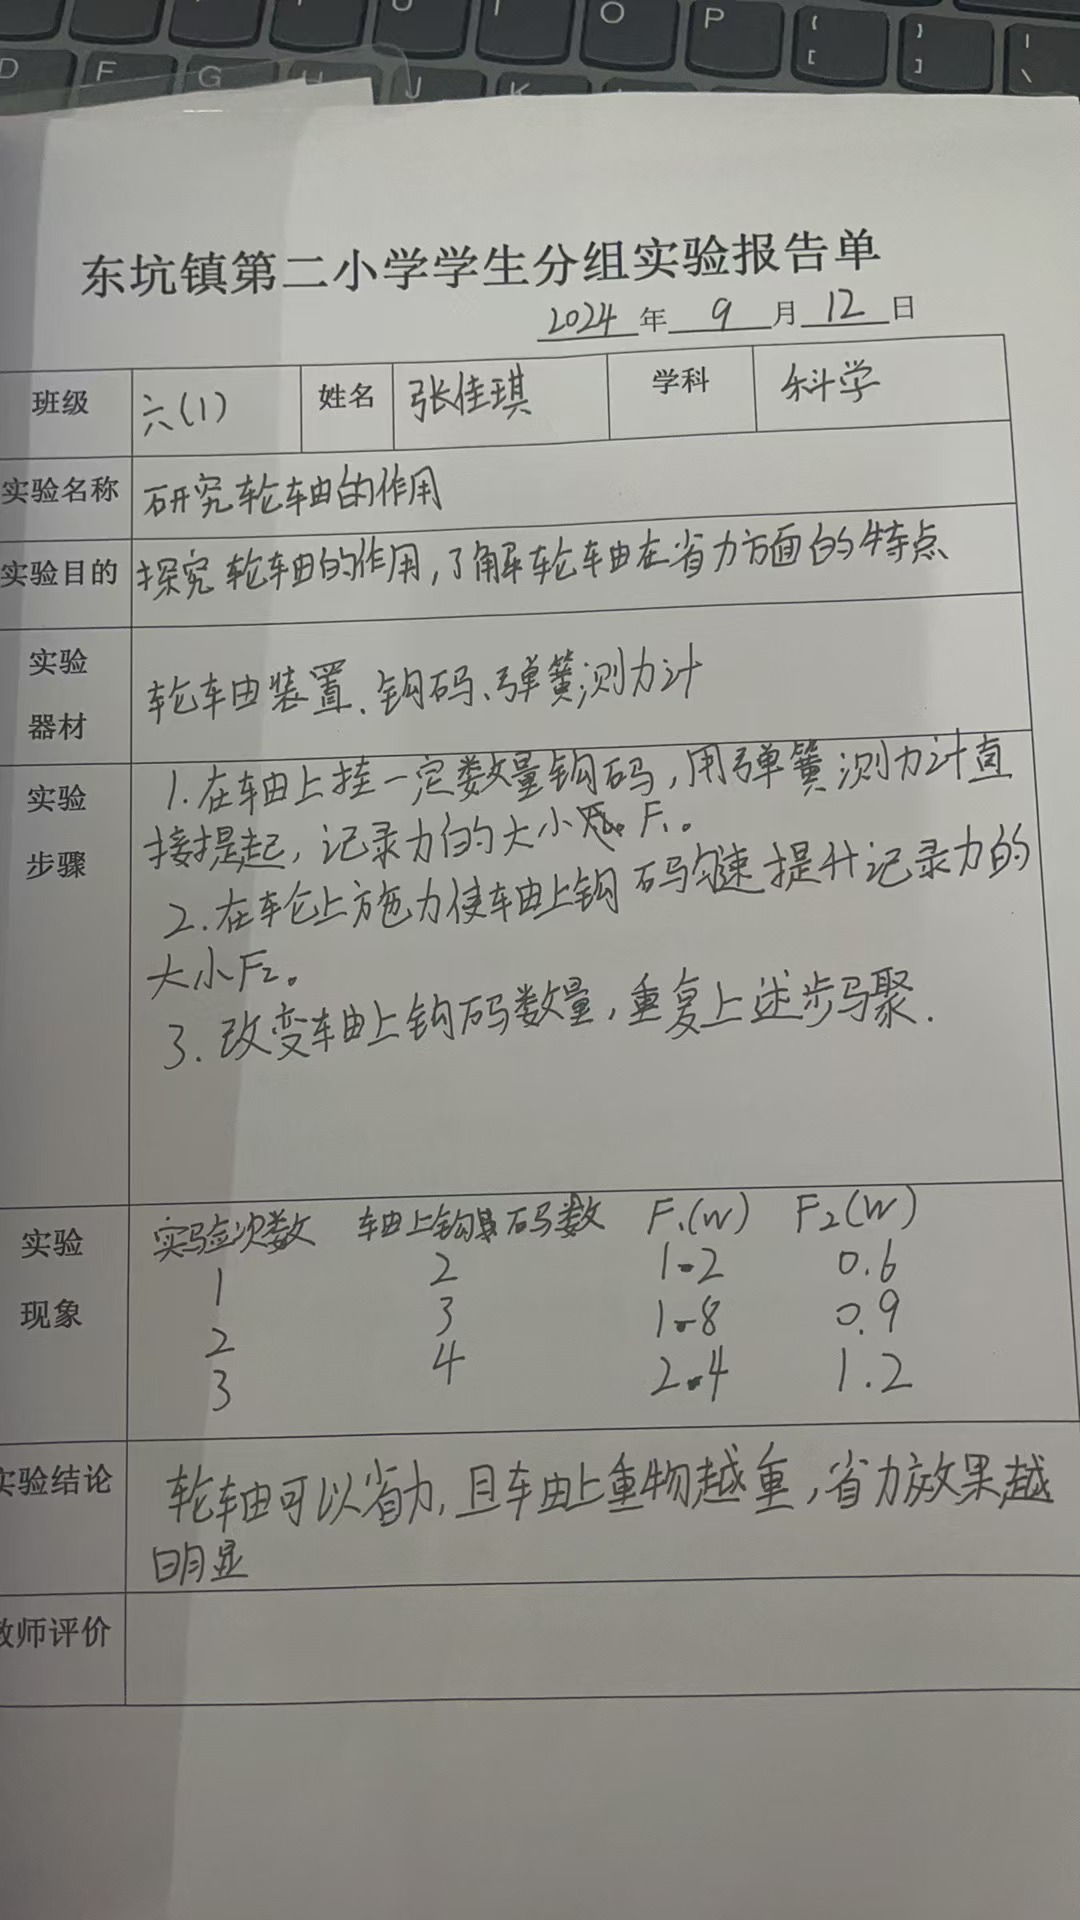 O P { [ } ] | \
D F G H J K
东坑镇第二小学学生分组实验报告单
2024 年 9 月 12 日
班级 六(1) 姓名 张佳琪 学科 科学
实验名称 研究轮轴的作用
实验目的 探究轮轴的作用,了解轮轴在省力方面的特点
实验
器材
轮轴装置、钩码、弹簧测力计
实验
步骤
1.在轴上挂一定数量钩码,用弹簧测力计直
接提起,记录力的大小F₁。
2.在轮上施力使轴上钩码匀速提升记录力的
大小F₂。
3.改变轴上钩码数量,重复上述步骤.
实验
现象
实验次数 轴上钩码数 F₁(W) F₂(W)
1 2 1.2 0.6
2 3 1.8 0.9
3 4 2.4 1.2
实验结论 轮轴可以省力,且轴上重物越重,省力效果越
明显
教师评价